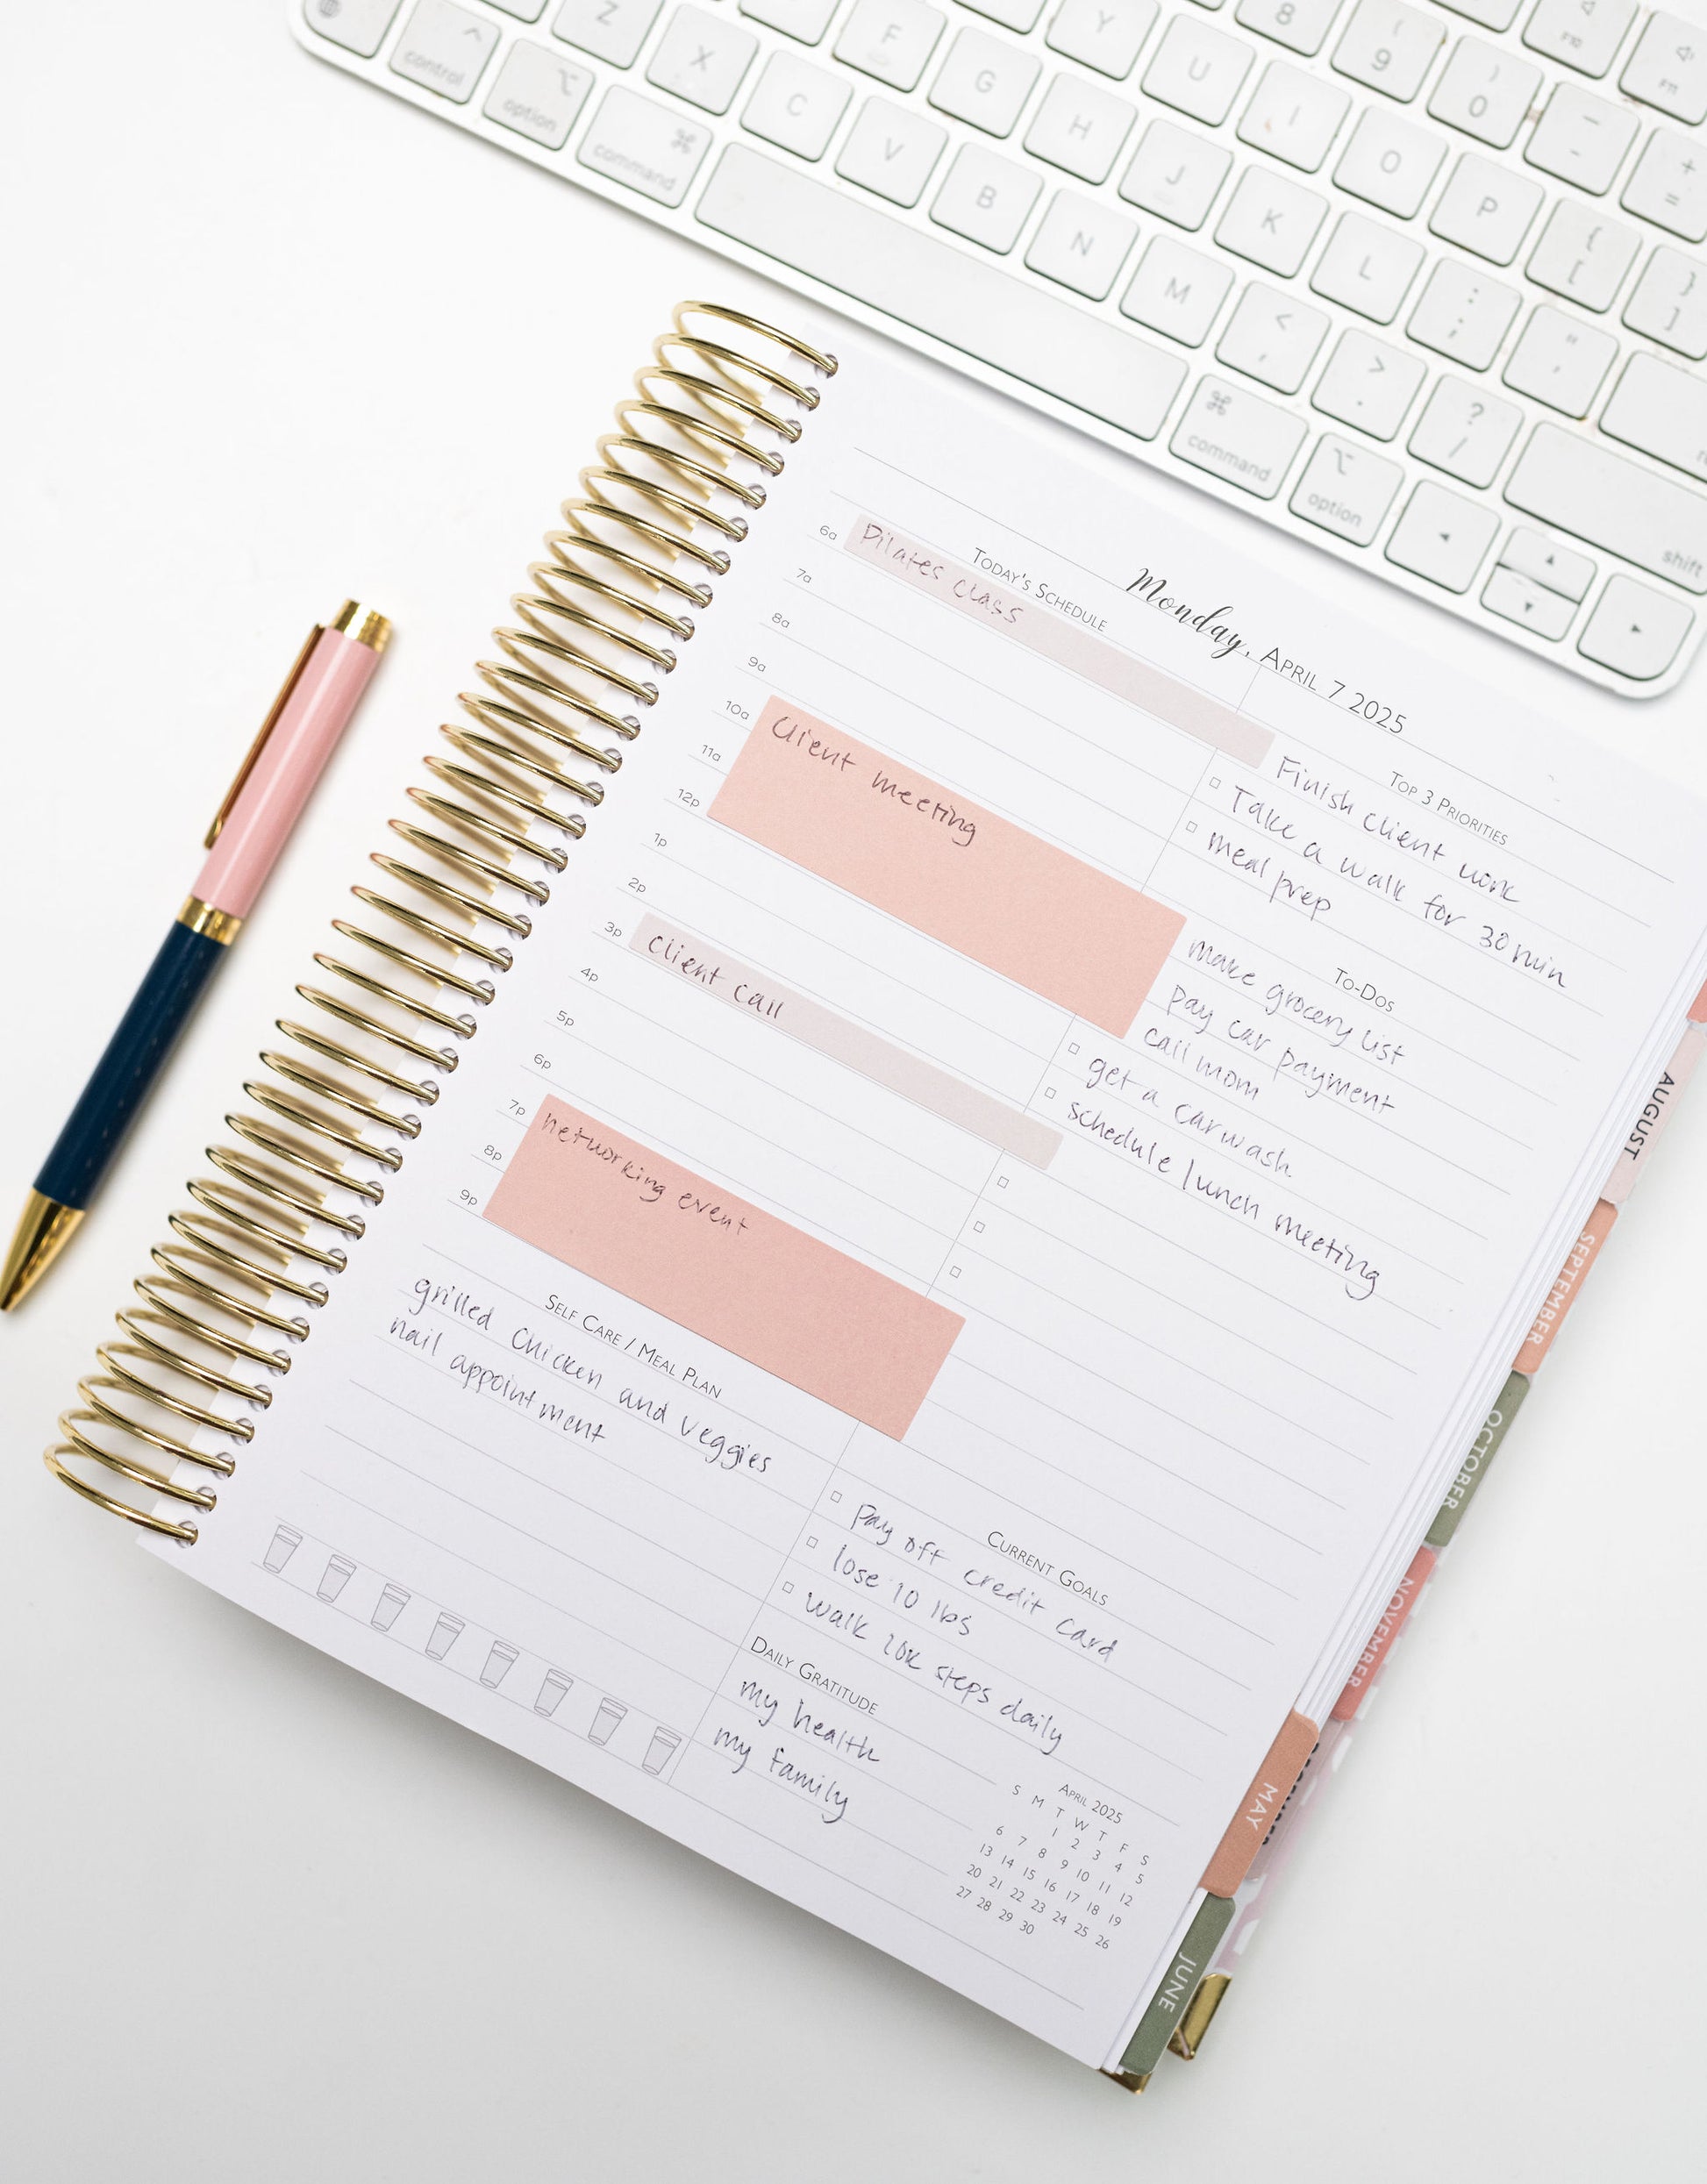 control
option
command
Z
X
C
V
B
N
M
F
G
H
J
K
L
Y
U
I
O
P
8
( 9
) 0
_ -
+ =
{ [
} ]
: ;
" '
< ,
> .
? /
F10
F11
⌘ command
option
shift
Monday, April 7 2025
Today's Schedule
6a Pilates class
7a
8a
9a
10a Client meeting
11a
12p
1p
2p
3p client call
4p
5p
6p
7p networking event
8p
9p
Top 3 Priorities
Finish client work
Take a walk for 30 min
meal prep
To-Dos
make grocery list
pay car payment
call mom
get a car wash
schedule lunch meeting
Self Care / Meal Plan
grilled chicken and veggies
nail appointment
Current Goals
pay off credit card
lose 10 lbs
walk 10k steps daily
Daily Gratitude
my health
my family
April 2025
S M T W T F S
1 2 3 4 5
6 7 8 9 10 11 12
13 14 15 16 17 18 19
20 21 22 23 24 25 26
27 28 29 30
AUGUST
SEPTEMBER
OCTOBER
NOVEMBER
MAY
JUNE